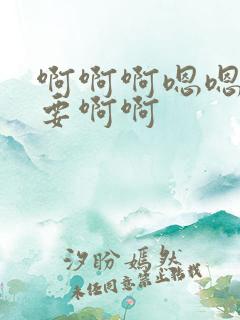 啊啊啊嗯嗯
要啊啊
汐盼嫣然
未经同意禁止转载